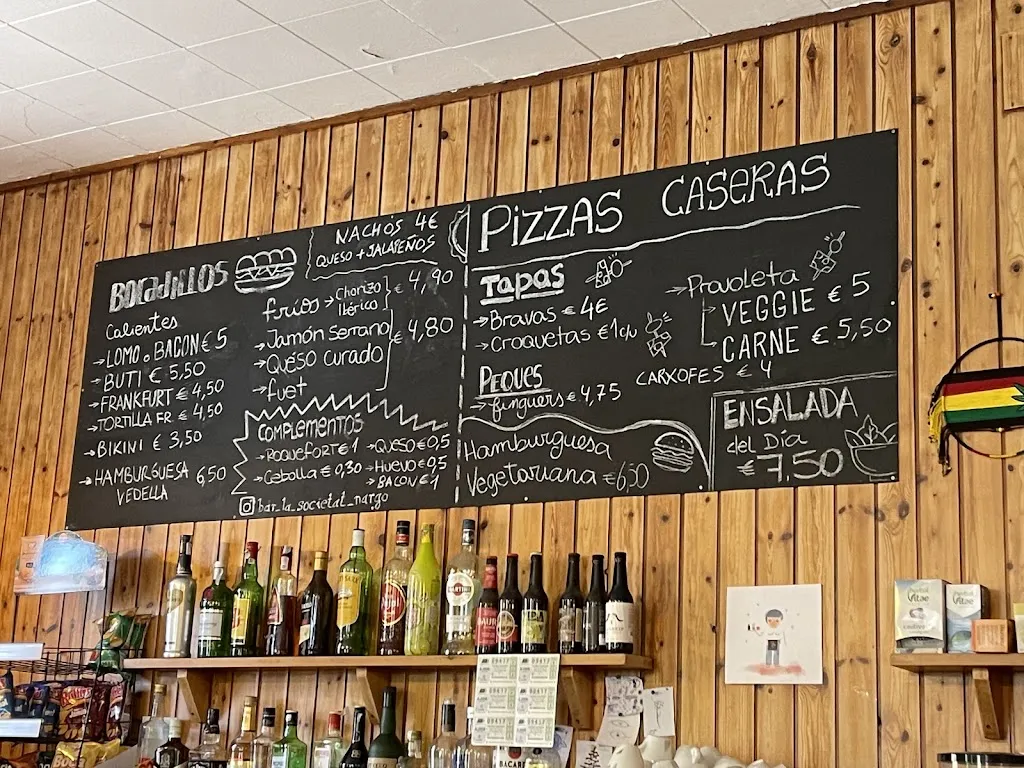 BOCADILLOS
Calientes
→LOMO o BACON € 5
→BUTI € 5,50
→FRANKFURT € 4,50
→TORTILLA FR. € 4,50
→BIKINI € 3,50
→HAMBURGUESA 6,50
VEDELLA
NACHOS 4€
QUESO + JALAPEÑOS
fríos → Chorizo € 4,90
Ibérico
→Jamón Serrano € 4,80
→Queso curado
→fuet
COMPLEMENTOS
→ROQUEFORT € 1 →QUESO € 0,5
→Cebolla € 0,30 →HUEVO € 0,5
→BACON € 1
bar_la_societat_nargo
PIZZAS CASERAS
TAPAS
→Bravas € 4€
→Croquetas € 1 c/u
→Provoleta
VEGGIE € 5
CARNE € 5,50
CARXOFES € 4
PEQUES
→finguers € 4,75
Hamburguesa
Vegetariana € 6,50
ENSALADA
del Día
€ 7,50
MARTINI
Vitae
Vitae